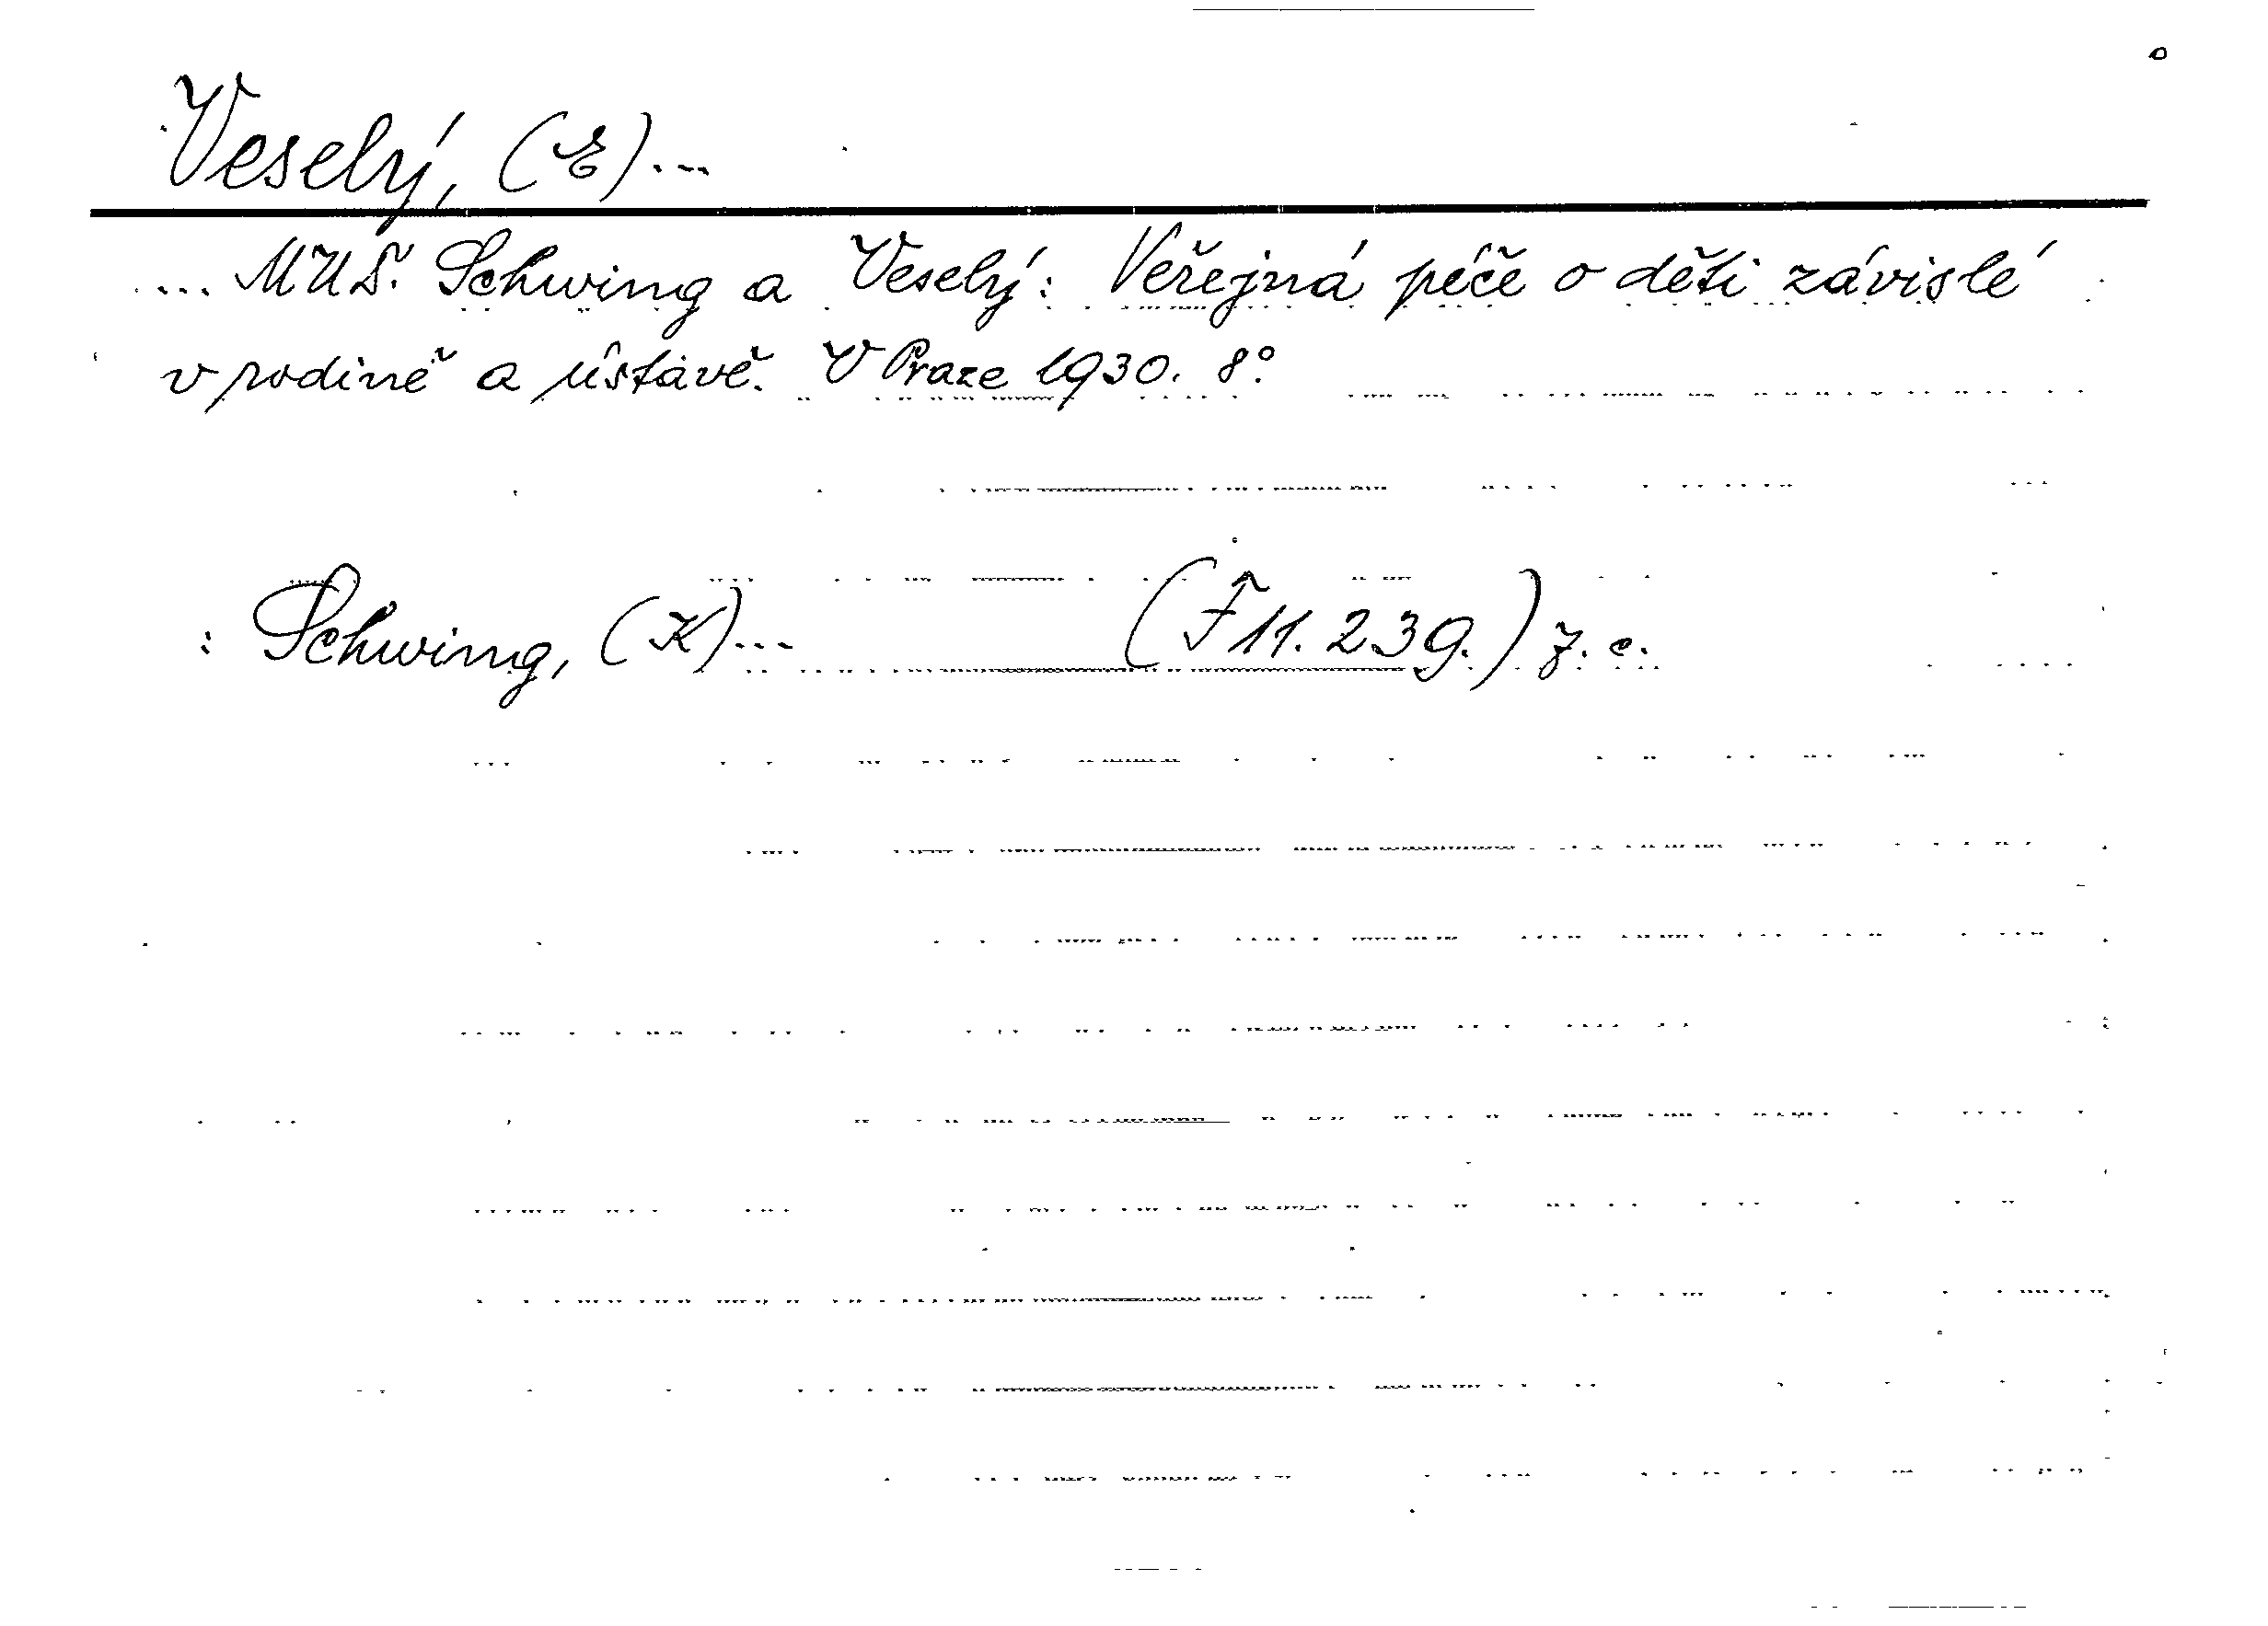 Veselý, (E)...
... MUD. Schwing a Veselý: Veřejná péče o děti závislé
v rodině a ústavě. V Praze 1930. 8°.
: Schwing, (K)... (F 11. 239.) z. c.